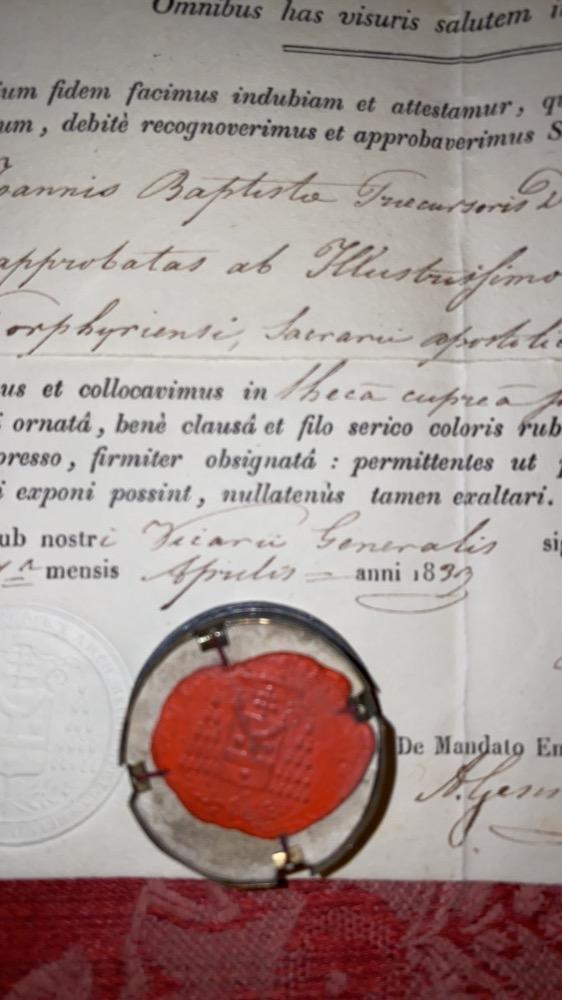 Omnibus has visuris salutem i
ium fidem facimus indubiam et attestamur, qu
um, debitè recognoverimus et approbaverimus S
oannis Baptistæ Præcursoris D
approbatas ab Illustrissimo
orphyriensi, Sacrarii apostolic
us et collocavimus in thecâ cupreâ
i ornatâ, benè clausâ et filo serico coloris rub
presso, firmiter obsignatâ : permittentes ut p
i exponi possint, nullatenùs tamen exaltari.
ub nostri Vicarii Generalis sig
mensis Aprilis anni 18
De Mandato Em